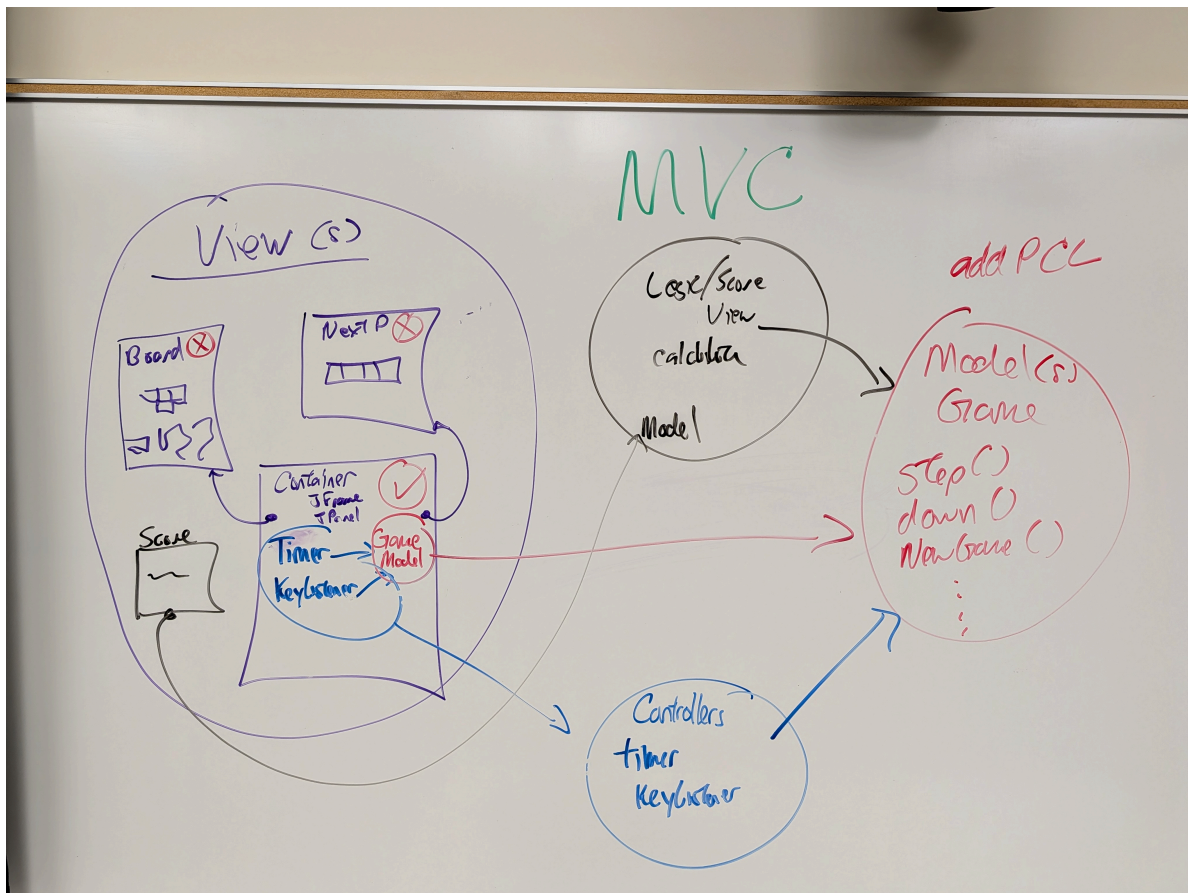 MVC
View (s)
Board
Next P
Container
JFrame
JPanel
Timer
KeyListener
Game
Model
Score
Logic/Score
View
Model
addPCL
Model(s)
Game
step()
down()
NewGame()
Controllers
timer
KeyListener